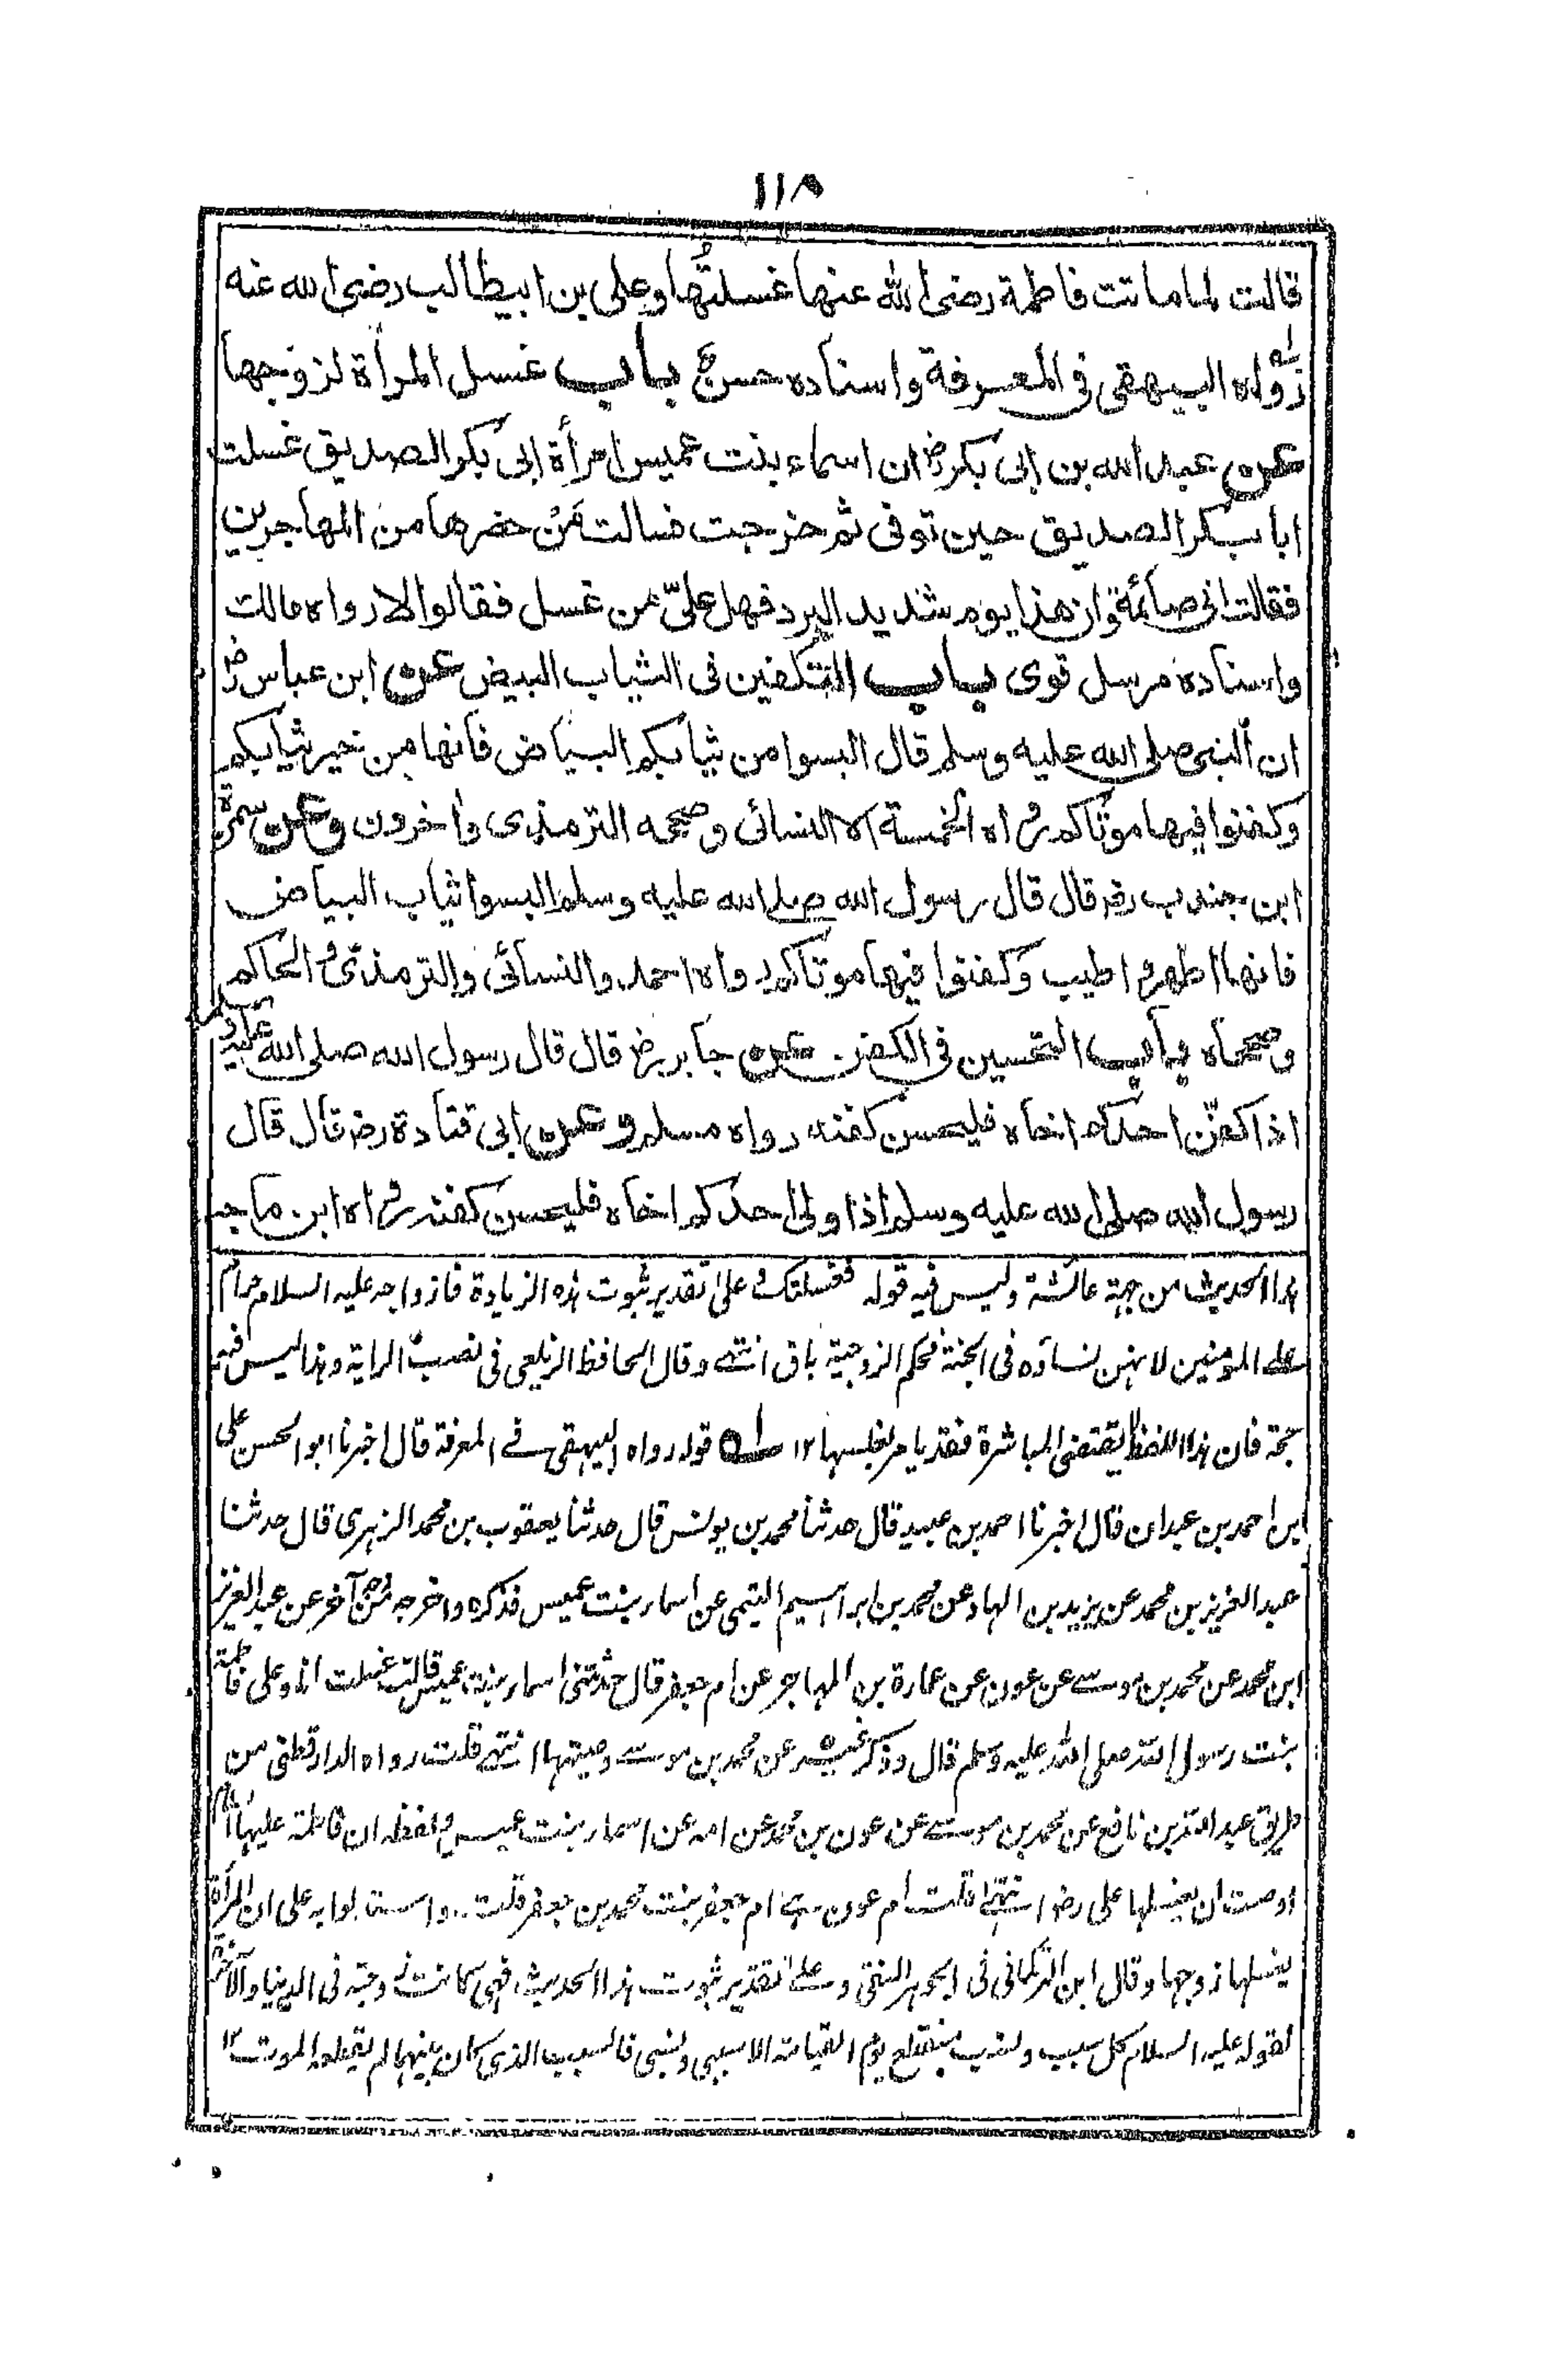 ١١٨
قالت لما ماتت فاطمة رضی الله عنها غسلتُها وعلی بن ابیطالب رضی الله عنه
رواه البیهقی فی المعرفة واسناده حسن باب غسل المرأة لزوجها
عن عبد الله بن ابی بکر رض ان اسماء بنت عمیس امرأة ابی بکر الصدیق غسلت
ابا بکر الصدیق حین توفی ثم خرجت فسالت مَنْ حضرها من المهاجرین
فقالت انی صائمة وان هذا یوم شدید البرد فهل علیّ من غسل فقالوا لا رواه مالک
واسناده مرسل قوی باب التکفین فی الثیاب البیض عن ابن عباس رض
ان النبی صلی الله علیه وسلم قال البسوا من ثیابکم البیاض فانها من خیر ثیابکم
وکفنوا فیها موتاکم رواه الخمسة الا النسائی وصححه الترمذی واخرون وعن سمرة
ابن جندب رض قال قال رسول الله صلی الله علیه وسلم البسوا ثیاب البیاض
فانها اطهر واطیب وکفنوا فیها موتاکم رواه احمد والنسائی والترمذی والحاکم
وصححاه باب التحسین فی الکفن عن جابر رض قال قال رسول الله صلی الله علیه وسلم
اذا کفّن احدکم اخاه فلیحسن کفنه رواه مسلم وعن ابی قتادة رض قال قال
رسول الله صلی الله علیه وسلم اذا ولی احدکم اخاه فلیحسن کفنه رواه ابن ماجه
هذا الحدیث من جهة عائشة ولیس فیه قوله فغسلتک وعلی تقدیر ثبوت هذه الزیادة فازواجه علیه السلام حرام
علی المومنین لانهن نساؤه فی الجنة فحکم الزوجیة باق انتهی وقال الحافظ الزیلعی فی نصب الرایة وهذا لیس فیه
حجة فان هذا اللفظ لا یقتضی المباشرة فقد یامر بغسلها ١٢ له قوله رواه البیهقی فی المعرفة قال اخبرنا ابو الحسن علی
ابن احمد بن عبدان قال اخبرنا احمد بن عبید قال حدثنا محمد بن یونس قال حدثنا یعقوب بن محمد الزهری قال حدثنا
عبد العزیز بن محمد عن یزید بن الهاد عن محمد بن ابراهیم التیمی عن اسماء بنت عمیس فذکره واخرجه من وجه آخر عن عبد العزیز
ابن محمد عن محمد بن موسی عن عون عن عمارة بن المهاجر عن ام جعفر قال حدثتنی اسماء بنت عمیس قالت غسلت انا وعلی فاطمة
بنت رسول الله صلی الله علیه وسلم قال وذکر غیره عن محمد بن موسی وصیتها انتهی قلت رواه الدارقطنی من
طریق عبد الله بن نافع عن محمد بن موسی عن عون بن محمد عن امه عن اسماء بنت عمیس ولفظه ان فاطمة علیها السلام
اوصت ان یغسلها علی رض انتهی قلت ام عون هی ام جعفر بنت محمد بن جعفر قلت واستدلوا به علی ان المرأة
یغسلها زوجها وقال ابن الترکمانی فی الجوهر النقی وعلی تقدیر ثبوت هذا الحدیث فهی کانت زوجته فی الدنیا والآخرة
لقوله علیه السلام کل سبب ونسب ینقطع یوم القیامة الا سببی ونسبی فالسبب الذی کان بینهما لم یقطعه الموت ١٢